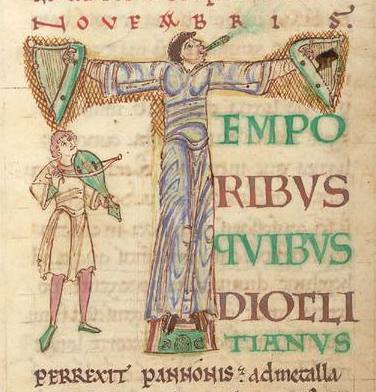 NOVEMBRIS.
TEMPO
RIBVS
QVIBVS
DIOCLI
TIANVS
PERREXIT PANNONIS: ad metalla